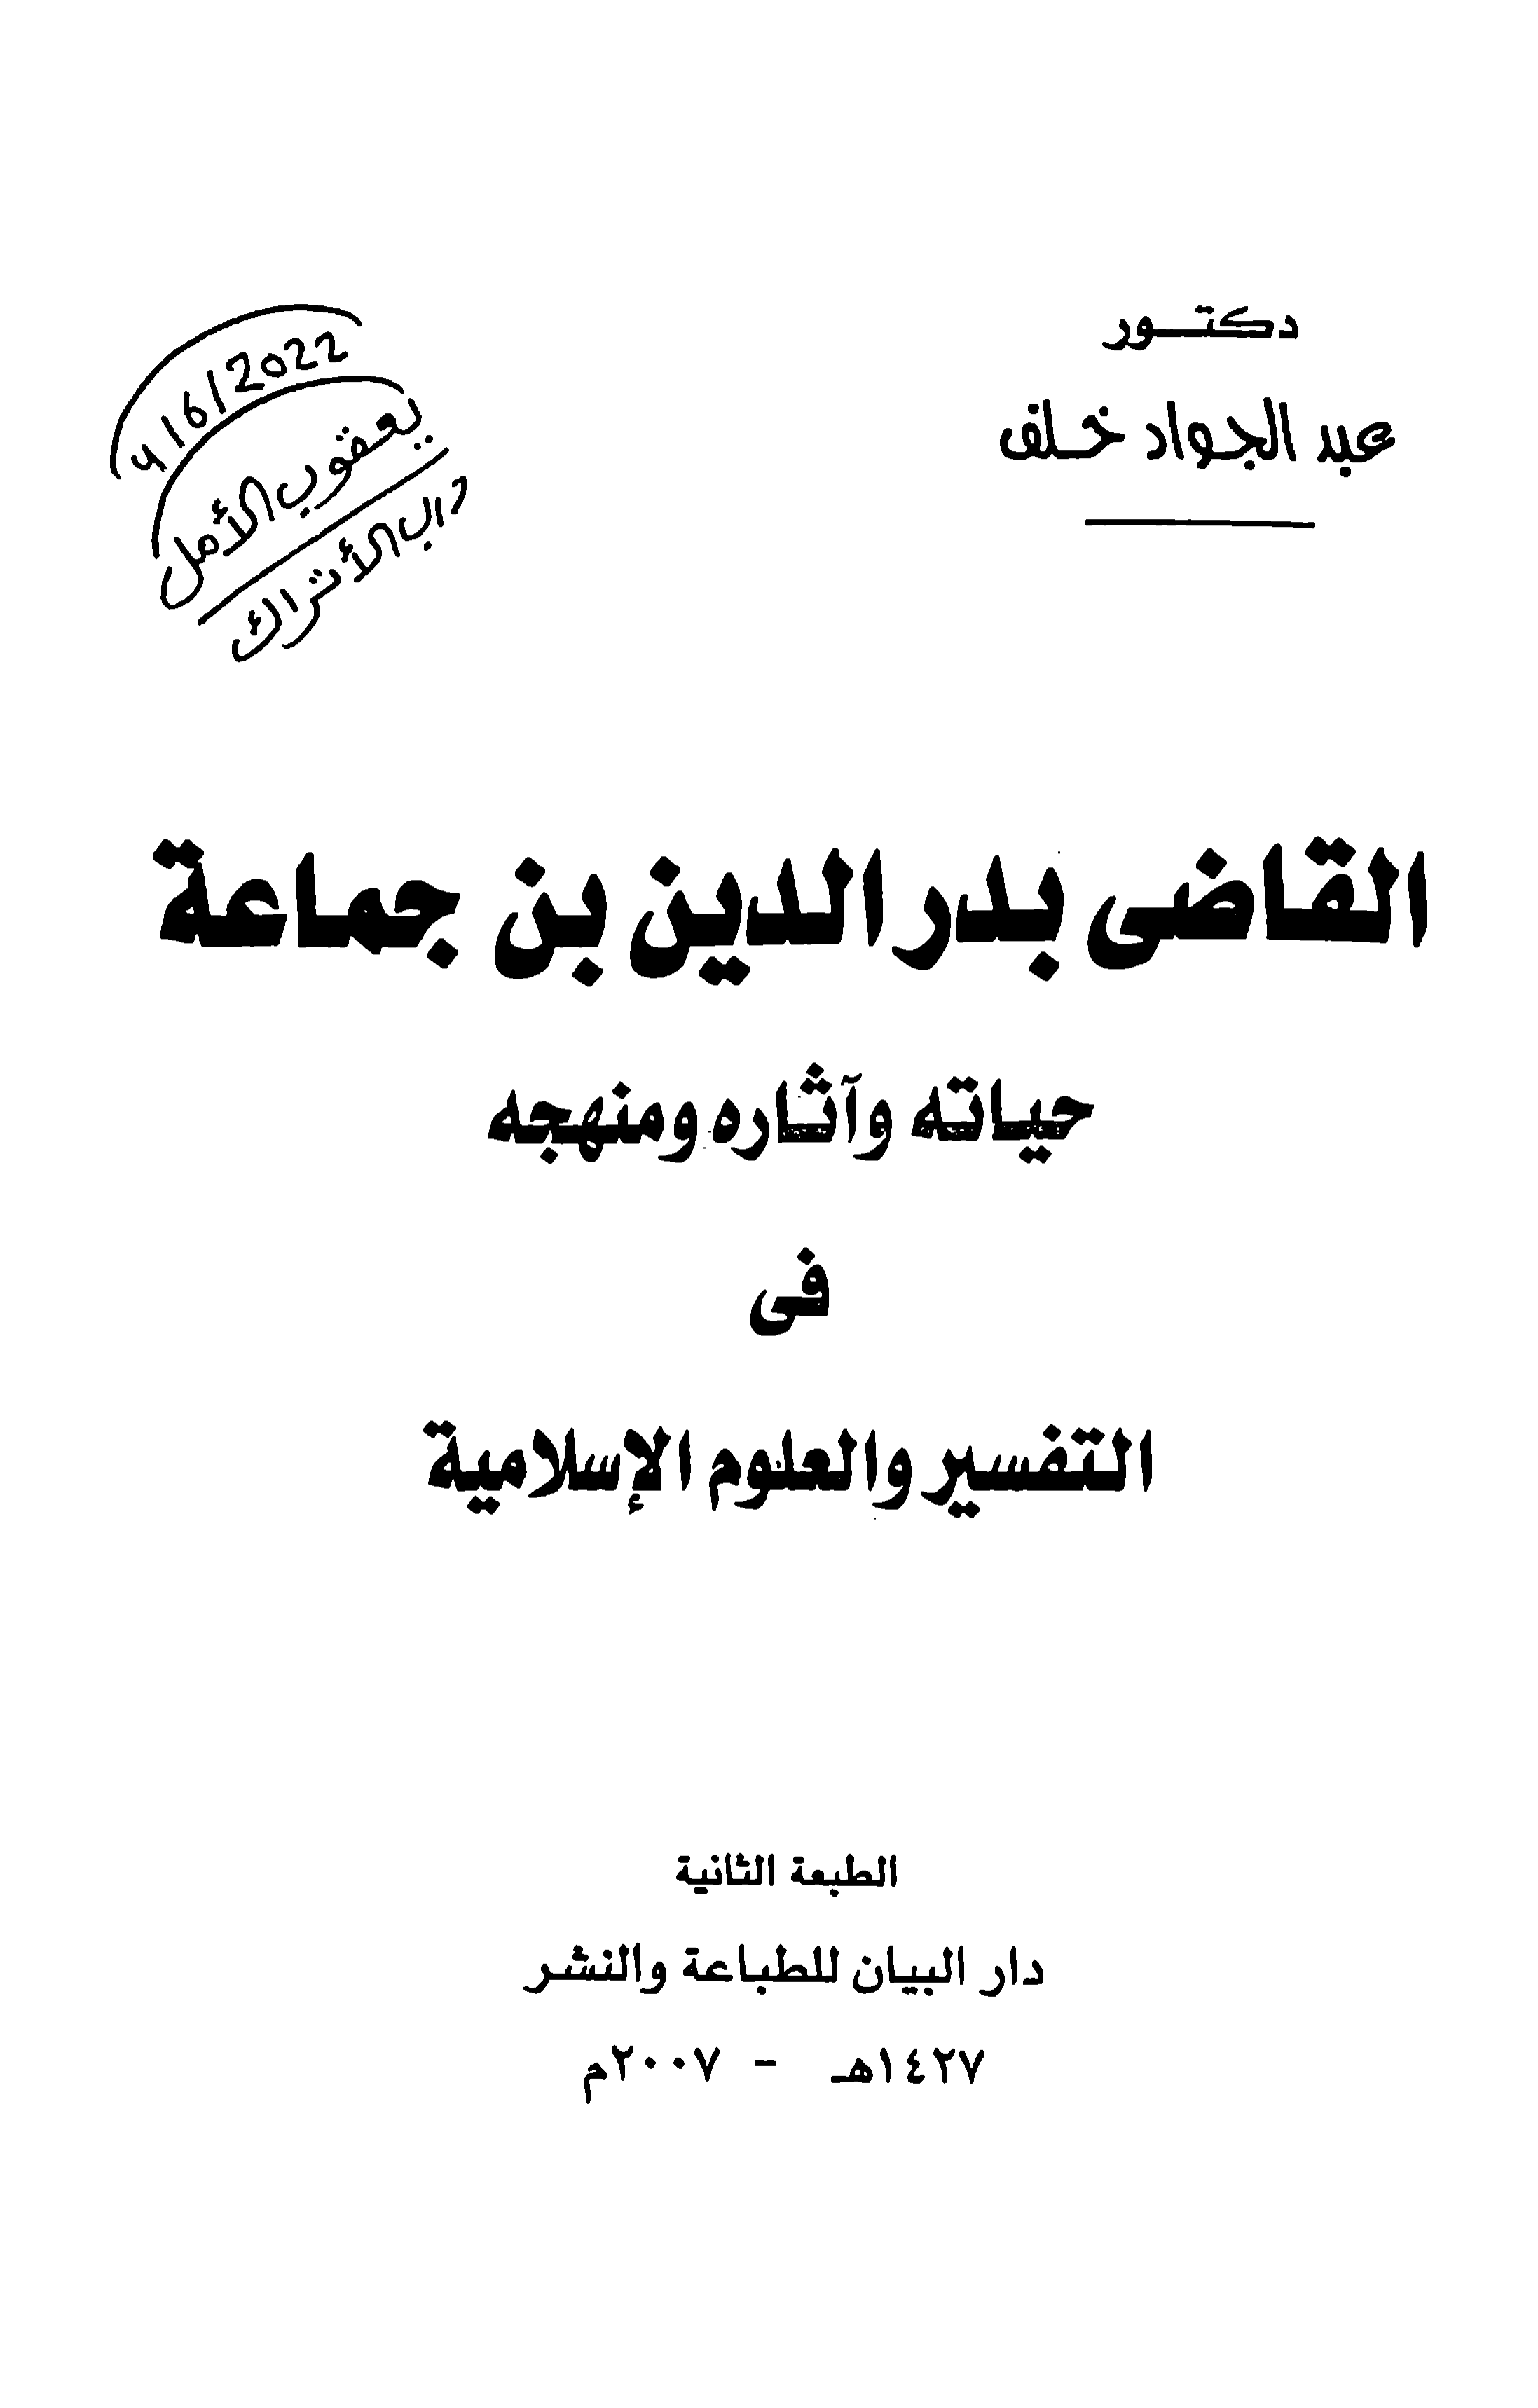 دكتور
عبد الجواد خلف
/6/2022
يعقوب الأمل
باب الأتراك
القاضى بدر الدين بن جماعة
حياته وآثاره ومنهجه
فى
التفسير والعلوم الإسلامية
الطبعة الثانية
دار البيان للطباعة والنشر
١٤٢٧هـ - ٢٠٠٧م